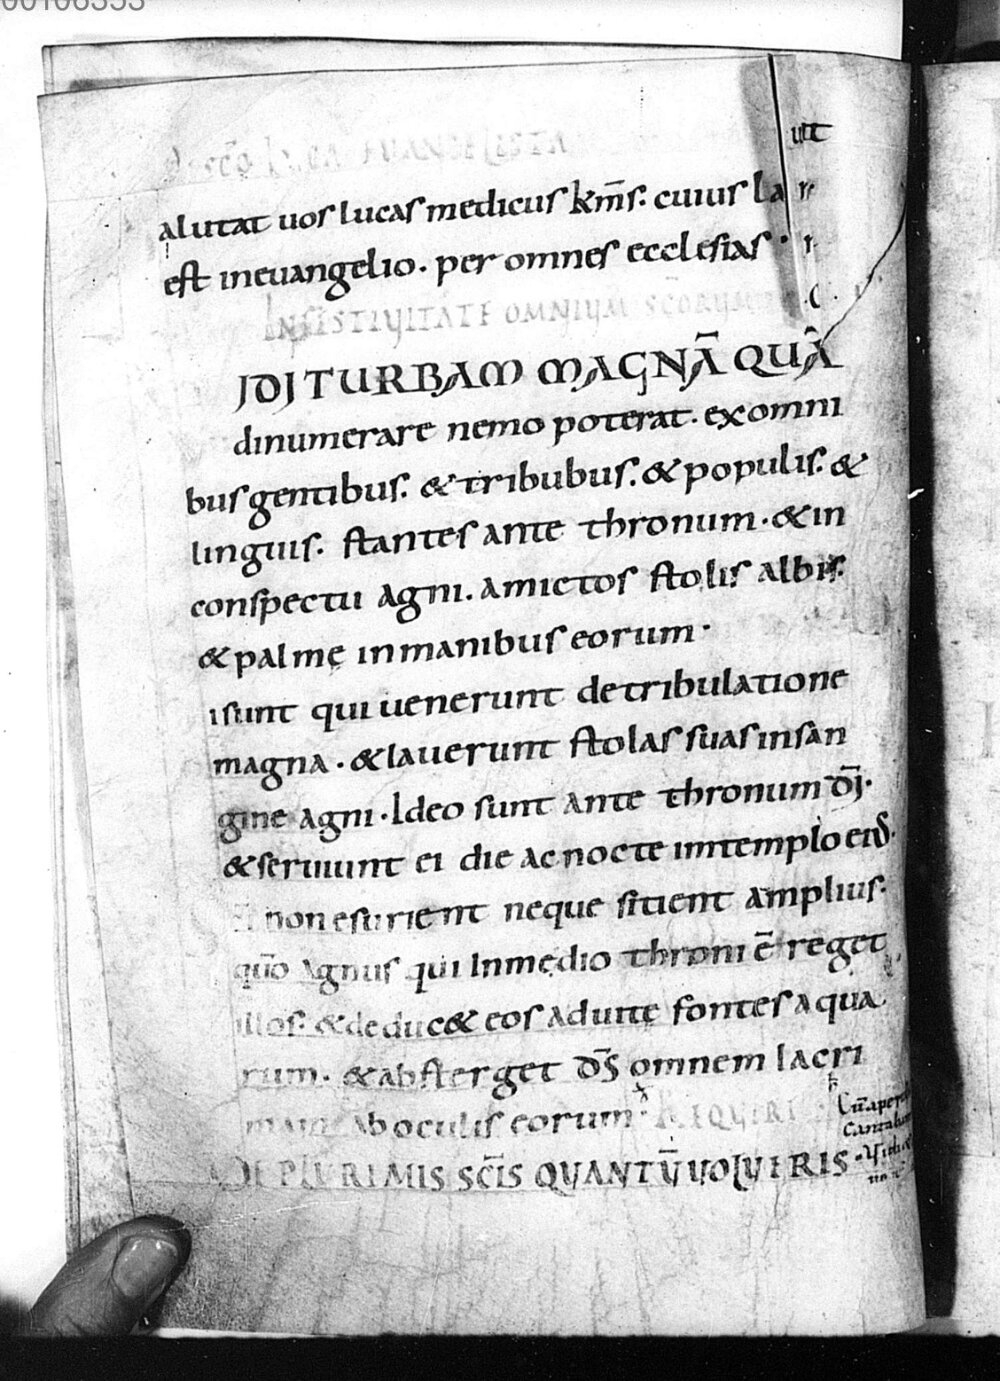 00106353
sc̄o luca euangelista
alutat uos lucas medicus km̄s. cuius la
est in euangelio. per omnes ecclesias.
In festiuitate omnium sc̄orum
IDI TURBAM MAGNĀ QUĀ
dinumerare nemo poterat. ex omni
bus gentibus. & tribubus. & populis. &
linguis. stantes ante thronum. & in
conspectu agni. amictos stolis albis.
& palmę in manibus eorum.
i sunt qui uenerunt de tribulatione
magna. & lauerunt stolas suas in san
gine agni. Ideo sunt ante thronum dī.
& seruiunt ei die ac nocte in templo eius.
non esurient neque sitient amplius.
quō agnus qui In medio throni ē reget
illos. & deduc& eos ad uitę fontes aqua
rum. & absterget dS̄ omnem lacri
mam ab oculis eorum. REQUIRE
DE PLURIMIS SCĪS QUANTŪ UOLUERIS